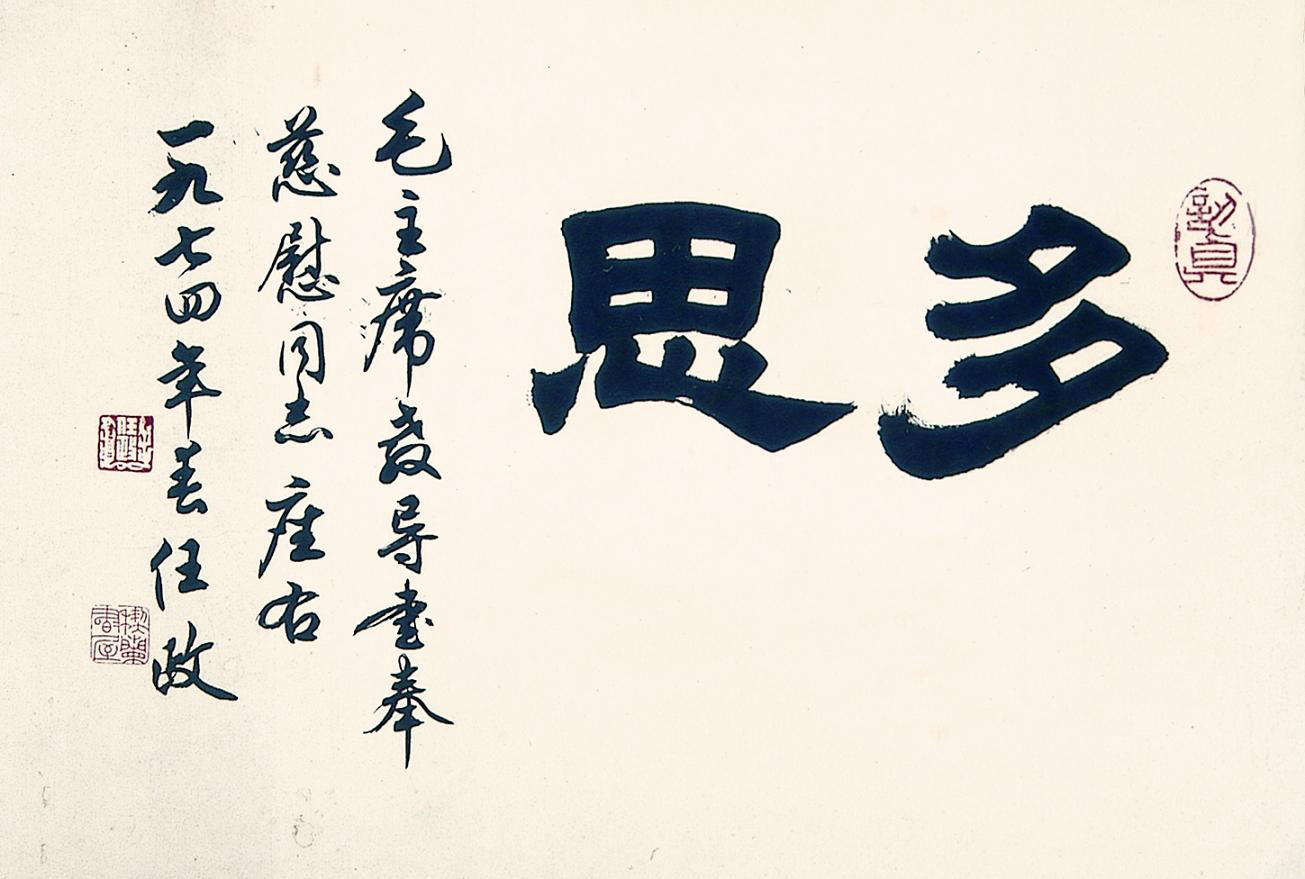 多思
毛主席教导书奉
慈慰同志座右
一九七四年春任政